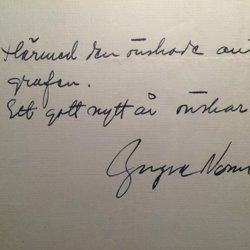 Härmed den önskade au
grafen.
Ett gott nytt år önskar
Yngve